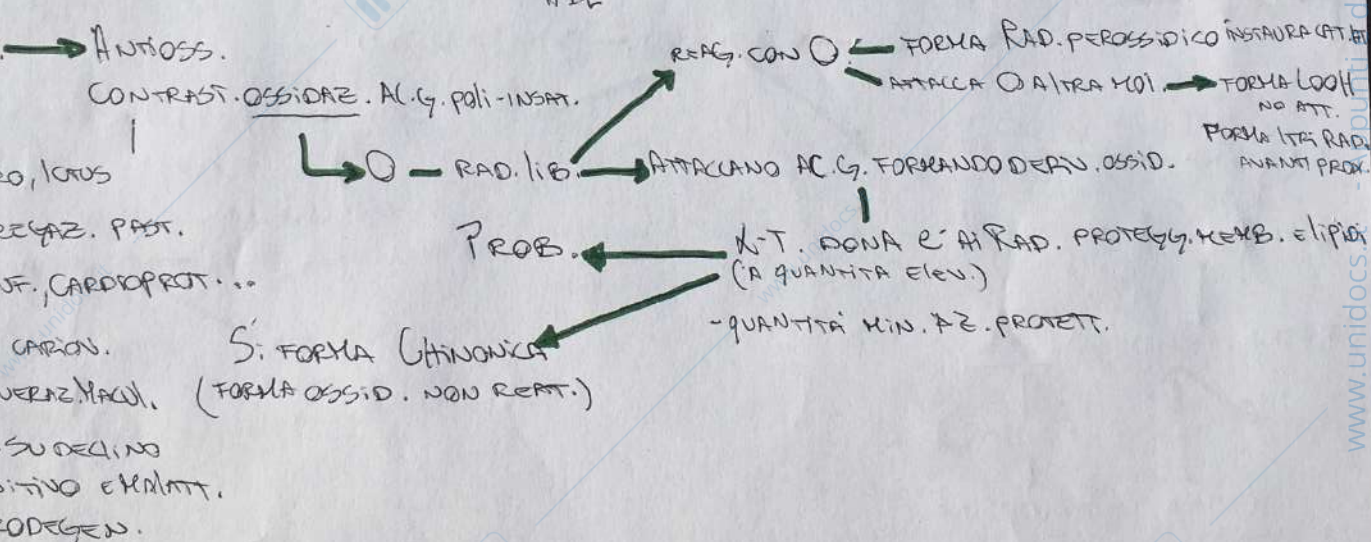 ANTIOSS.
CONTRAST. OSSIDAZ. AC.G. POLI-INSAT.
O, ICTUS
O — RAD. LIB.
REAG. CON O
FORMA RAD. PEROSSIDICO INSTAURA CAT.
ATTACCA O ALTRA MOL.
FORMA LOOH
NO ATT.
FORMA RAD.
AVANTI
ATTACCANO AC.G. FORMANDO DERIV. OSSID.
PROB.
α-T. DONA e⁻ AI RAD. PROTEGG. MEMB. E LIPIDI
(A QUANTITÀ ELEV.)
- QUANTITÀ MIN. AZ. PROTETT.
SI FORMA CHINONICA
(FORMA OSSID. NON REAT.)
PAST.
CARDIOPROT...
CARION.
MACUL.
SU DECLINO
ITIVO E MALATT.
ODEGEN.
www.unidocs.